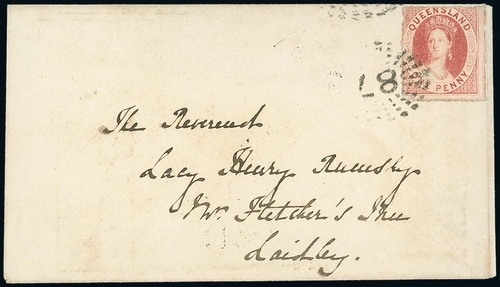 QUEENSLAND
PENNY
87
The Reverend
Lacy Henry Rumsby
Mr. Fletcher's Inn
Laidley.